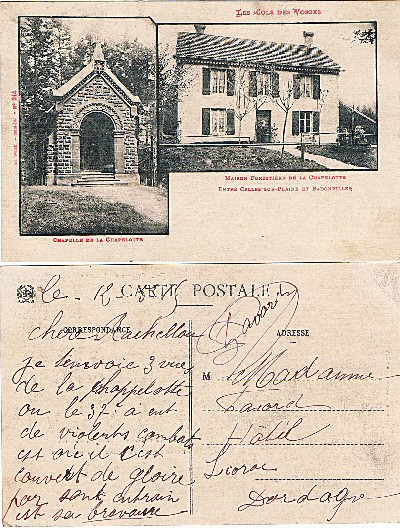 LES COLS DES VOSGES
MAISON FORESTIÈRE DE LA CHAPELOTTE
ENTRE CELLES-SUR-PLAINE ET BADONVILLER
CHAPELLE DE LA CHAPELOTTE
le 12
CARTE POSTALE
CORRESPONDANCE
ADRESSE
chère
je t'envoie 3 vues
de la chappelotte
ou le 37e a eut
de violents combats
est ore il c'est
couvert de gloire
par sont entrain
est sa bravoure
M Madamme
Davard
Hotil
Dordogne